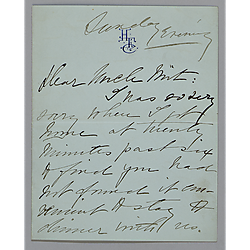 Sunday
Evening
Dear Uncle Mit:
I was so very
sorry when I got
home at twenty
minutes past six
to find you had
not found it con-
venient to stay to
dinner with us.